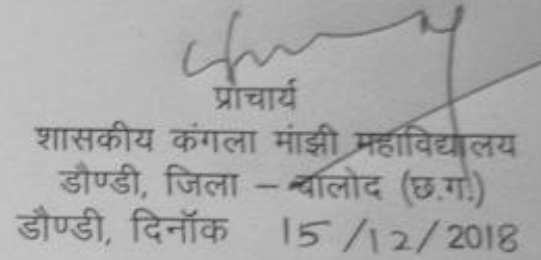 प्राचार्य
शासकीय कंगला मांझी महाविद्यालय
डौण्डी, जिला – बालोद (छ.ग.)
डौण्डी, दिनॉक 15/12/2018